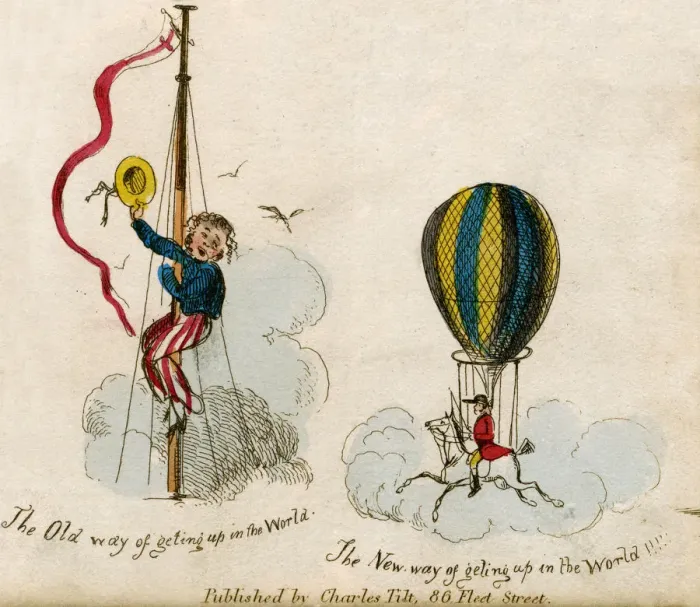 The Old way of geting up in the World.
The New way of geting up in the World !!!!
Published by Charles Tilt, 86 Fleet Street.